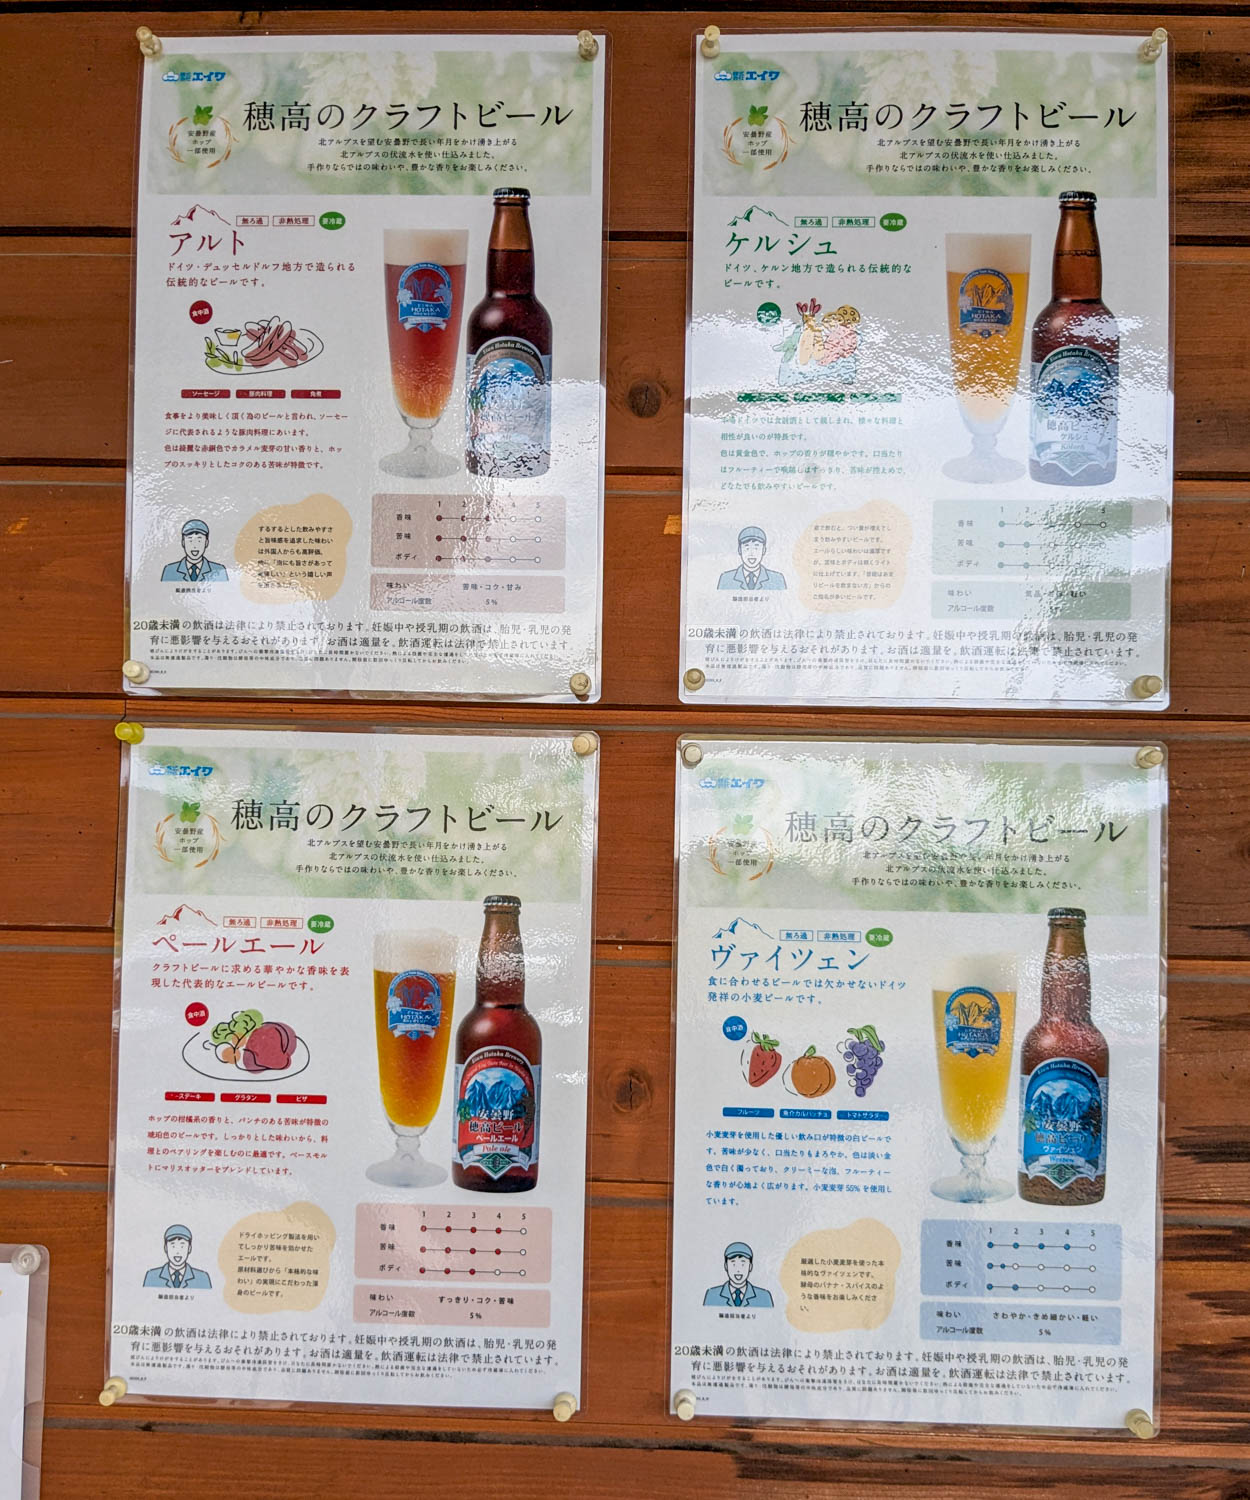 エイワ
安曇野産
ホップ
一部使用
穂高のクラフトビール
北アルプスを望む安曇野で長い年月をかけ湧き上がる
北アルプスの伏流水を使い仕込みました。
手作りならではの味わいや、豊かな香りをお楽しみください。
無ろ過 非熱処理 要冷蔵
アルト
ドイツ・デュッセルドルフ地方で造られる
伝統的なビールです。
食中酒
ソーセージ 豚肉料理 角煮
食事をより美味しく頂く為のビールと言われ、ソーセー
ジに代表されるような豚肉料理にあいます。
色は綺麗な赤銅色でカラメル麦芽の甘い香りと、ホッ
プのスッキリとしたコクのある苦味が特徴です。
するするとした飲みやすさ
と旨味感を追求した味わい
は外国人からも高評価。
「泡にも旨さがあって
美味しい」という嬉しい声
製造担当者より
1 2 3 4 5
香味
苦味
ボディ
味わい 苦味・コク・甘み
アルコール度数 5%
20歳未満の飲酒は法律により禁止されております。妊娠中や授乳期の飲酒は、胎児・乳児の発
育に悪影響を与えるおそれがあります。お酒は適量を。飲酒運転は法律で禁止されています。
エイワ
安曇野産
ホップ
一部使用
穂高のクラフトビール
北アルプスを望む安曇野で長い年月をかけ湧き上がる
北アルプスの伏流水を使い仕込みました。
手作りならではの味わいや、豊かな香りをお楽しみください。
無ろ過 非熱処理 要冷蔵
ケルシュ
ドイツ、ケルン地方で造られる伝統的な
ビールです。
本場ドイツでは食前酒として親しまれ、様々な料理と
相性が良いのが特長です。
色は黄金色で、ホップの香りが穏やかです。口当たり
はフルーティーで喉越しはすっきり、苦味が控えめで、
どなたでも飲みやすいビールです。
製造担当者より
1 2 3 4 5
香味
苦味
ボディ
味わい
アルコール度数
20歳未満の飲酒は法律により禁止されております。妊娠中や授乳期の飲酒は、胎児・乳児の発
育に悪影響を与えるおそれがあります。お酒は適量を。飲酒運転は法律で禁止されています。
エイワ
安曇野産
ホップ
一部使用
穂高のクラフトビール
北アルプスを望む安曇野で長い年月をかけ湧き上がる
北アルプスの伏流水を使い仕込みました。
手作りならではの味わいや、豊かな香りをお楽しみください。
無ろ過 非熱処理 要冷蔵
ペールエール
クラフトビールに求める華やかな香味を表
現した代表的なエールビールです。
食中酒
ステーキ グラタン ピザ
ホップの柑橘系の香りと、パンチのある苦味が特徴の
琥珀色のビールです。しっかりとした味わいから、料
理とのペアリングを楽しむのに最適です。ベースモル
トにマリスオッターをブレンドしています。
安曇野
穂高ビール
ペールエール
Pale ale
ドライホッピング製法を用い
てしっかり苦味を効かせた
エールです。
原材料選びから「本格的な味
わい」の実現にこだわった渾
身のビールです。
製造担当者より
1 2 3 4 5
香味
苦味
ボディ
味わい すっきり・コク・苦味
アルコール度数 5%
20歳未満の飲酒は法律により禁止されております。妊娠中や授乳期の飲酒は、胎児・乳児の発
育に悪影響を与えるおそれがあります。お酒は適量を。飲酒運転は法律で禁止されています。
エイワ
安曇野産
ホップ
一部使用
穂高のクラフトビール
北アルプスを望む安曇野で長い年月をかけ湧き上がる
北アルプスの伏流水を使い仕込みました。
手作りならではの味わいや、豊かな香りをお楽しみください。
無ろ過 非熱処理 要冷蔵
ヴァイツェン
食に合わせるビールでは欠かせないドイツ
発祥の小麦ビールです。
食中酒
フルーツ 魚介カルパッチョ トマトサラダ
小麦麦芽を使用した優しい飲み口が特徴の白ビールで
す。苦味が少なく、口当たりもまろやか、色は淡い金
色で白く濁っており、クリーミーな泡、フルーティー
な香りが心地よく広がります。小麦麦芽55%を使用し
ています。
安曇野
穂高ビール
ヴァイツェン
Weizen
厳選した小麦麦芽を使った本
格的なヴァイツェンです。
酵母のバナナ・スパイスのよ
うな香味をお楽しみくださ
い。
製造担当者より
1 2 3 4 5
香味
苦味
ボディ
味わい さわやか・きめ細かい・軽い
アルコール度数 5%
20歳未満の飲酒は法律により禁止されております。妊娠中や授乳期の飲酒は、胎児・乳児の発
育に悪影響を与えるおそれがあります。お酒は適量を。飲酒運転は法律で禁止されています。